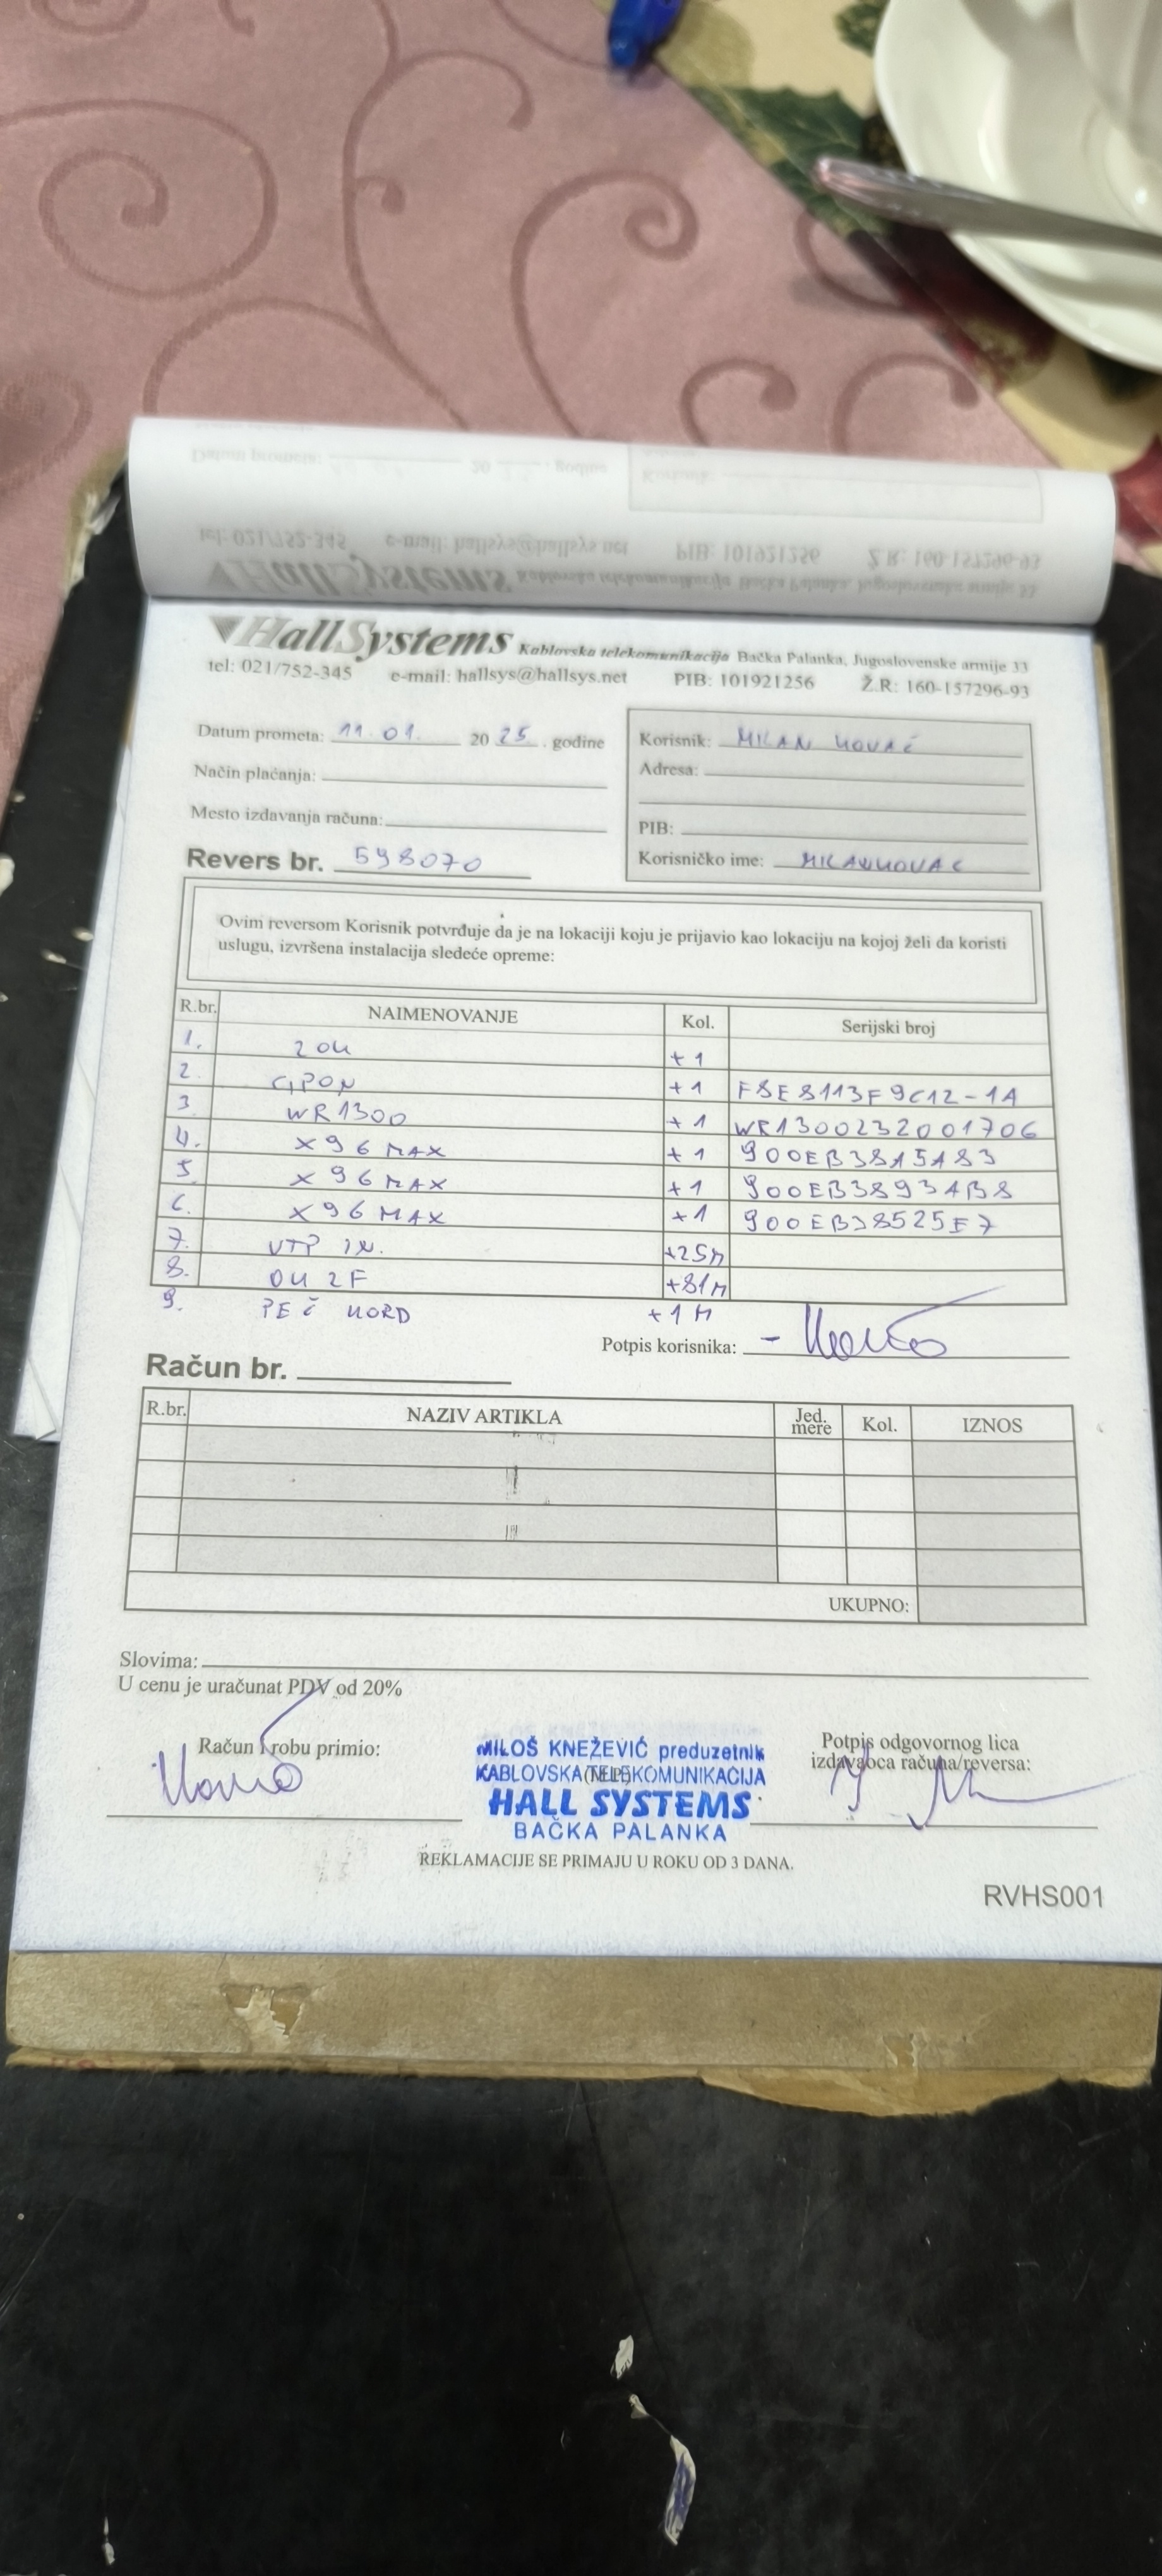 HallSystems Kablovska telekomunikacija Bačka Palanka, Jugoslovenske armije 33
tel: 021/752-345 e-mail: hallsys@hallsys.net PIB: 101921256 Ž.R: 160-157296-93
Datum prometa: 11.01. 2025. godine
Korisnik: MILAN KOVAČ
Način plaćanja:
Adresa:
Mesto izdavanja računa:
PIB:
Revers br. 598070
Korisničko ime: MILANKOVAC
Ovim reversom Korisnik potvrđuje da je na lokaciji koju je prijavio kao lokaciju na kojoj želi da koristi
uslugu, izvršena instalacija sledeće opreme:
R.br. NAIMENOVANJE Kol. Serijski broj
1. ZOK +1
2. GPON +1 F8E8113F9C12-1A
3. WR1300 +1 WR1300232001706
4. X96 MAX +1 900EB38A5A83
5. X96 MAX +1 900EB3893AB8
6. X96 MAX +1 900EB38525E7
7. UTP IN. +25M
8. OK 2F +81M
9. PEČ KORD +1M
Potpis korisnika:
Račun br.
R.br. NAZIV ARTIKLA Jed. mere Kol. IZNOS
UKUPNO:
Slovima:
U cenu je uračunat PDV od 20%
Račun i robu primio:
MILOŠ KNEŽEVIĆ preduzetnik
KABLOVSKA TELEKOMUNIKACIJA
(M.P.)
HALL SYSTEMS
BAČKA PALANKA
Potpis odgovornog lica
izdavaoca računa/reversa:
REKLAMACIJE SE PRIMAJU U ROKU OD 3 DANA.
RVHS001